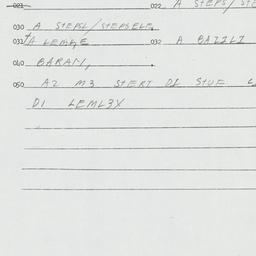 021 022 A STEPS/STE
030 A STEPSL/STEPSELE
031 A LEMGE 032 A BAZILI
040 BARAM,
050 A2 M3 STERT DL STUE
D1 LEML3X